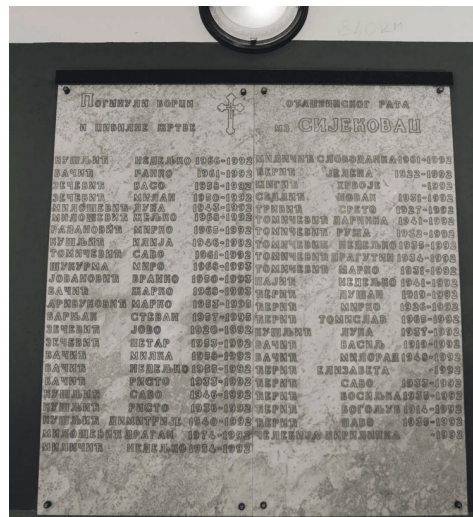 Погинули борци
и цивилне жртве
НЕДЕЉКО 1966-1992
БАЧИЋ РАНКО 1961-1992
ЗЕЧЕВИЋ ВАСО 1958-1992
ЗЕЧЕВИЋ МИЛАН 1950-1992
МИЛОШЕВИЋ ЛУКА 1943-1992
МИЛОШЕВИЋ ЖЕЉКО 1968-1992
РАДАНОВИЋ МИРКО 1965-1992
ИЛИЈА 1940-1992
ТОМИЧЕВИЋ САВО 1961-1992
ШУКУРМА МИРО 1968-1993
ЈОВАНОВИЋ БРАНКО 1950-1993
БАЧИЋ МАРКО 1960-1993
МАРКО 1953-1995
ВАРЊАН СТЕВАН 1957-1995
ЗЕЧЕВИЋ ЈОВО 1929-1992
ЗЕЧЕВИЋ ПЕТАР 1953-1992
БАЧИЋ МИЛКА 1938-1992
БАЧИЋ НЕДЕЉКО 1955-1992
БАЧИЋ РИСТО 1933-1992
САВО 1946-1992
РИСТО 1936-1992
ДИМИТРИЈЕ 1940-1992
МИЛОШЕВИЋ ДРАГАН 1974-1992
МИЛИЧИЋ НЕДЕЉКО 1934-1992
отаџбинског рата
из СИЈЕКОВАЦ
МИЛИЧИЋ СЛОБОДАНКА 1961-1992
ЗЕРИЋ ЈЕЛЕНА 1922-1992
ХРВОЈЕ -1992
ЈОВАН 1931-1992
ТРИВИЋ СРЕТО 1927-1992
ТОМИЧЕВИЋ ДАРИНКА 1941-1992
ТОМИЧЕВИЋ РУЖА 1932-1992
ТОМИЧЕВИЋ НЕДЕЉКО 1938-1992
ТОМИЧЕВИЋ ДРАГУТИН 1934-1992
ТОМИЧЕВИЋ МАРКО 1931-1992
НЕДЕЉКО 1941-1992
ЗЕРИЋ ДУШАН 1919-1992
ЗЕРИЋ МИРКО 1926-1992
ЗЕРИЋ ТОМИСЛАВ 1965-1992
ЛУКА 1937-1992
БАЧИЋ ВАСИЉ 1919-1992
БАЧИЋ МИЛОРАД 1949-1992
ЗЕРИЋ ЕЛИЗАБЕТА -1992
ЗЕРИЋ САВО 1933-1992
ЗЕРИЋ ВОСИЉКА 1935-1992
ЗЕРИЋ БОГОЉУБ 1914-1992
ЗЕРИЋ 1939-1992
ЧЕЛЕБИЈА -1992